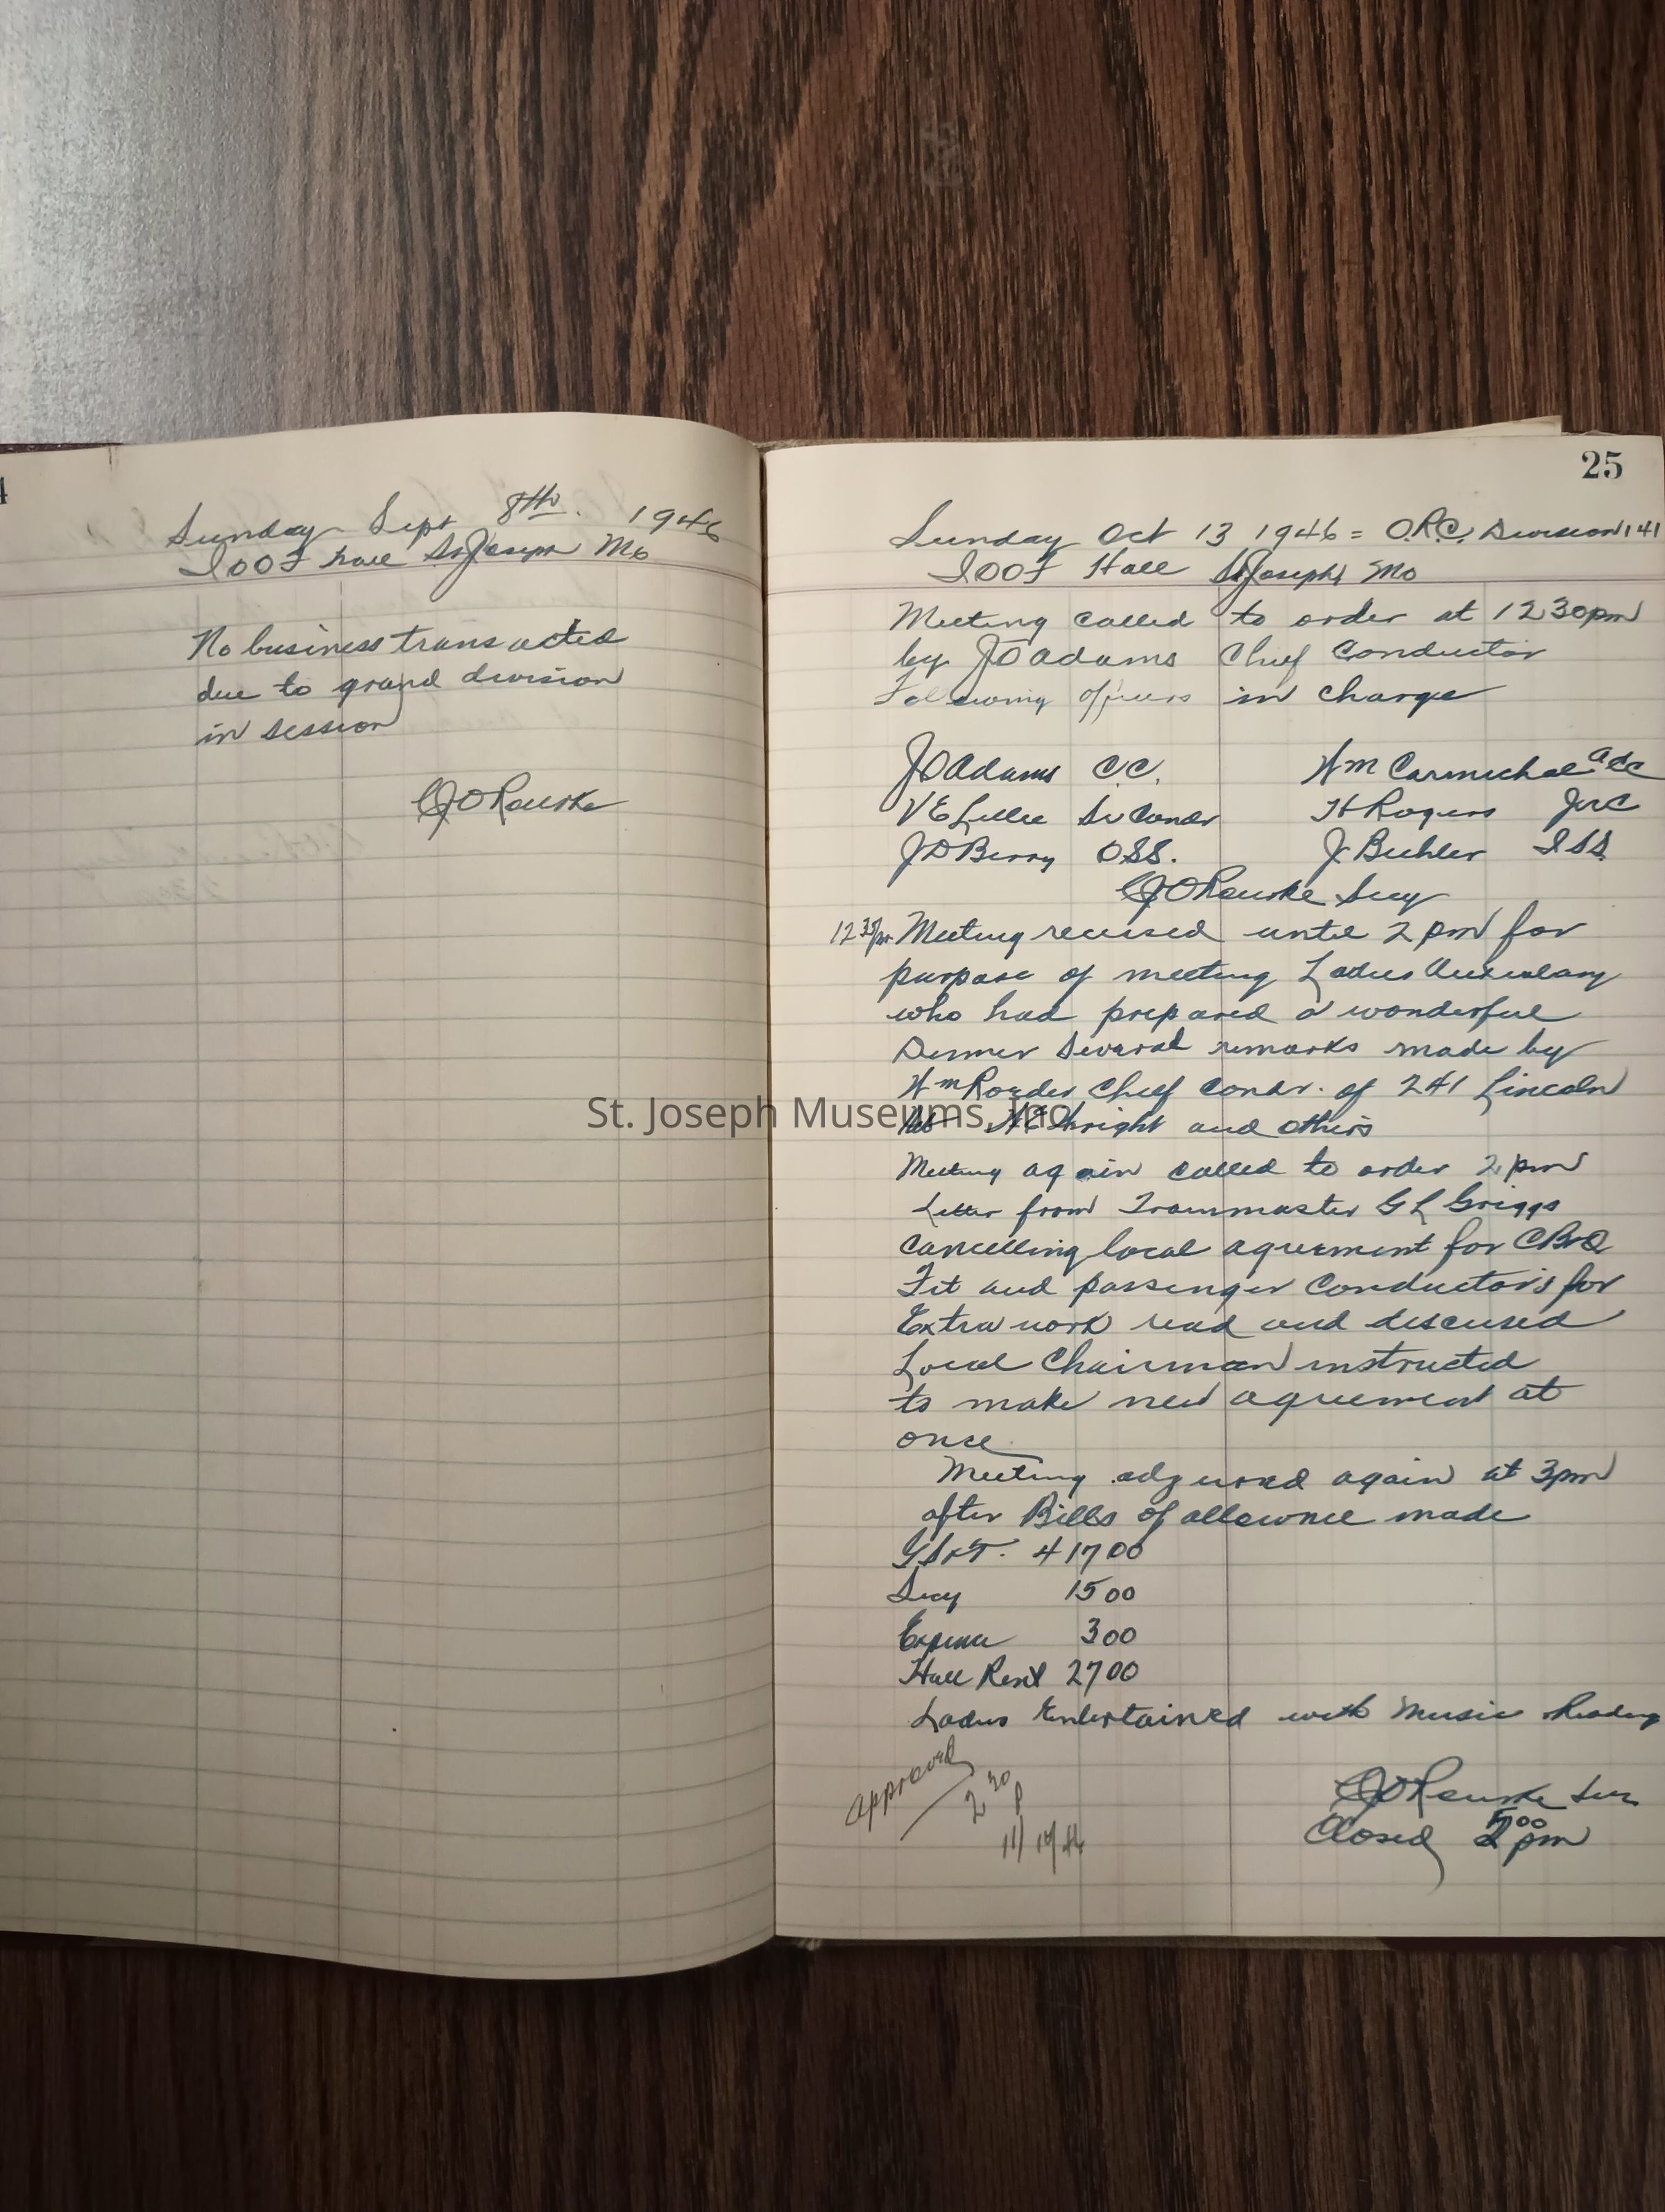 Sunday Sept 8th. 1946
IOOF hall St Joseph Mo
No business transacted
due to grand division
in session
CJ O Rourke
25
Sunday Oct 13 1946 = O.R.C. Division 141
IOOF Hall St Joseph Mo
Meeting called to order at 12 30pm
by JO Adams Chief Conductor
Following officers in charge
JO Adams C.C. Wm Carmichael acc
VE Lillie Sr Condr H Rogers JrC
JD Berry OSS. J Buhler ISS.
CJ O Rourke Secy
12 35 pm Meeting recessed until 2 pm for
purpose of meeting Ladies Auxulary
who had prepared a wonderful
Dinner Several remarks made by
Wm Roeder Chief Condr. of 241 Lincoln
Wright and others
Meeting again called to order 2 pm
Letter from Trainmaster G L Griggs
cancelling local agreement for CB&Q
Frt and passenger Conductors for
Extra work read and discused
Local Chairman instructed
to make new agreement at
once
Meeting adjurned again at 3pm
after Bills of allownce made
GS&T. 417 00
Secy 15 00
Expense 3 00
Hall Rent 27 00
Ladies Entertained with Music Reading
Approved
2 30 P
11/10/46
CJ O Rourke Secy
Closed 5 00 pm
St. Joseph Museums, Inc.